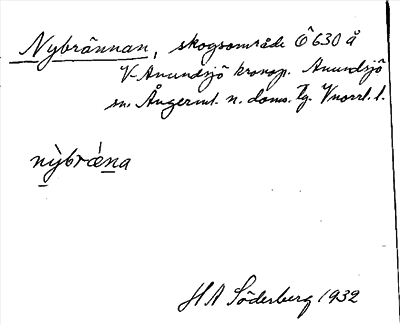 Nybrännan, skogsområde Ô 630 å
V. Anundsjö kronop. Anundsjö
sn. Ångerml. n. doms. tg. Vnorrl. l.
nỳbrǽna
HA Söderberg 1932